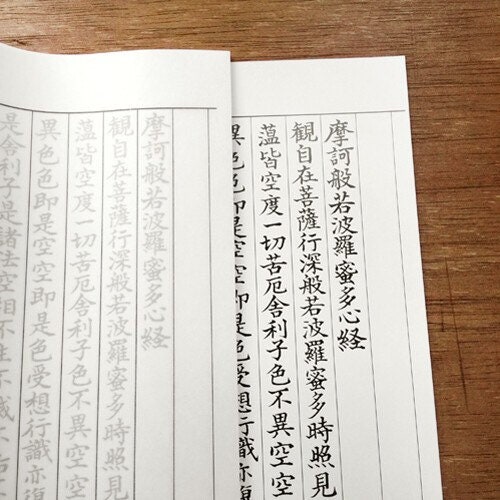 摩訶般若波羅蜜多心経
観自在菩薩行深般若波羅蜜多時照見
薀皆空度一切苦厄舍利子色不異空空
異色色即是空空即是色受想行識亦復
摩訶般若波羅蜜多心経
観自在菩薩行深般若波羅蜜多時照見
薀皆空度一切苦厄舍利子色不異空空
異色色即是空空即是色受想行識亦復
是舍利子是諸法空相不生不滅不